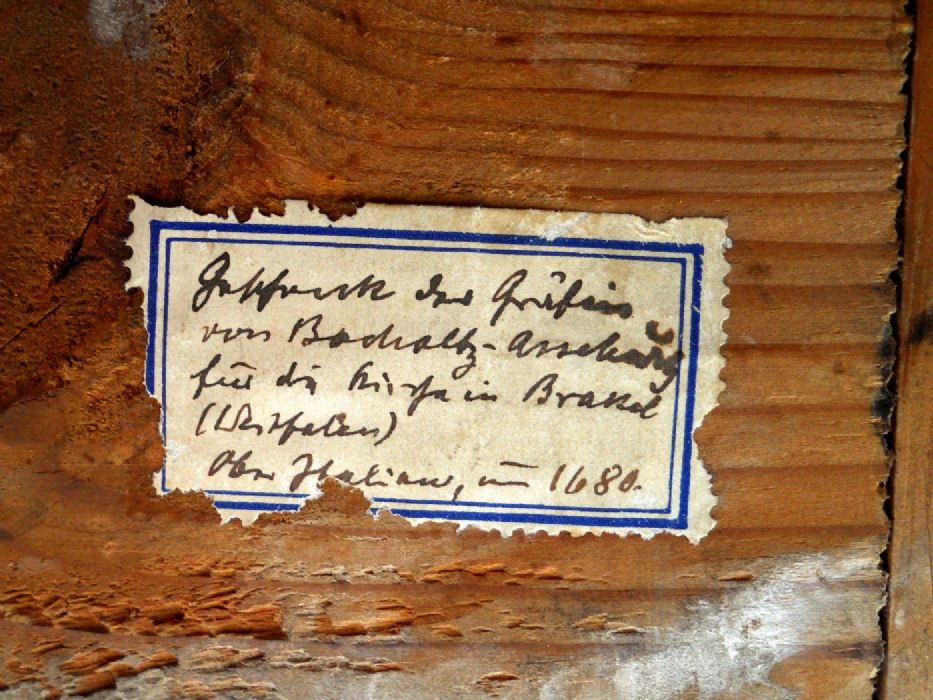 Geschenk der Gräfin
von Bocholtz-Asseburg
für die Kirche in Brakel
(Westfalen)
Ober Italien, um 1680.